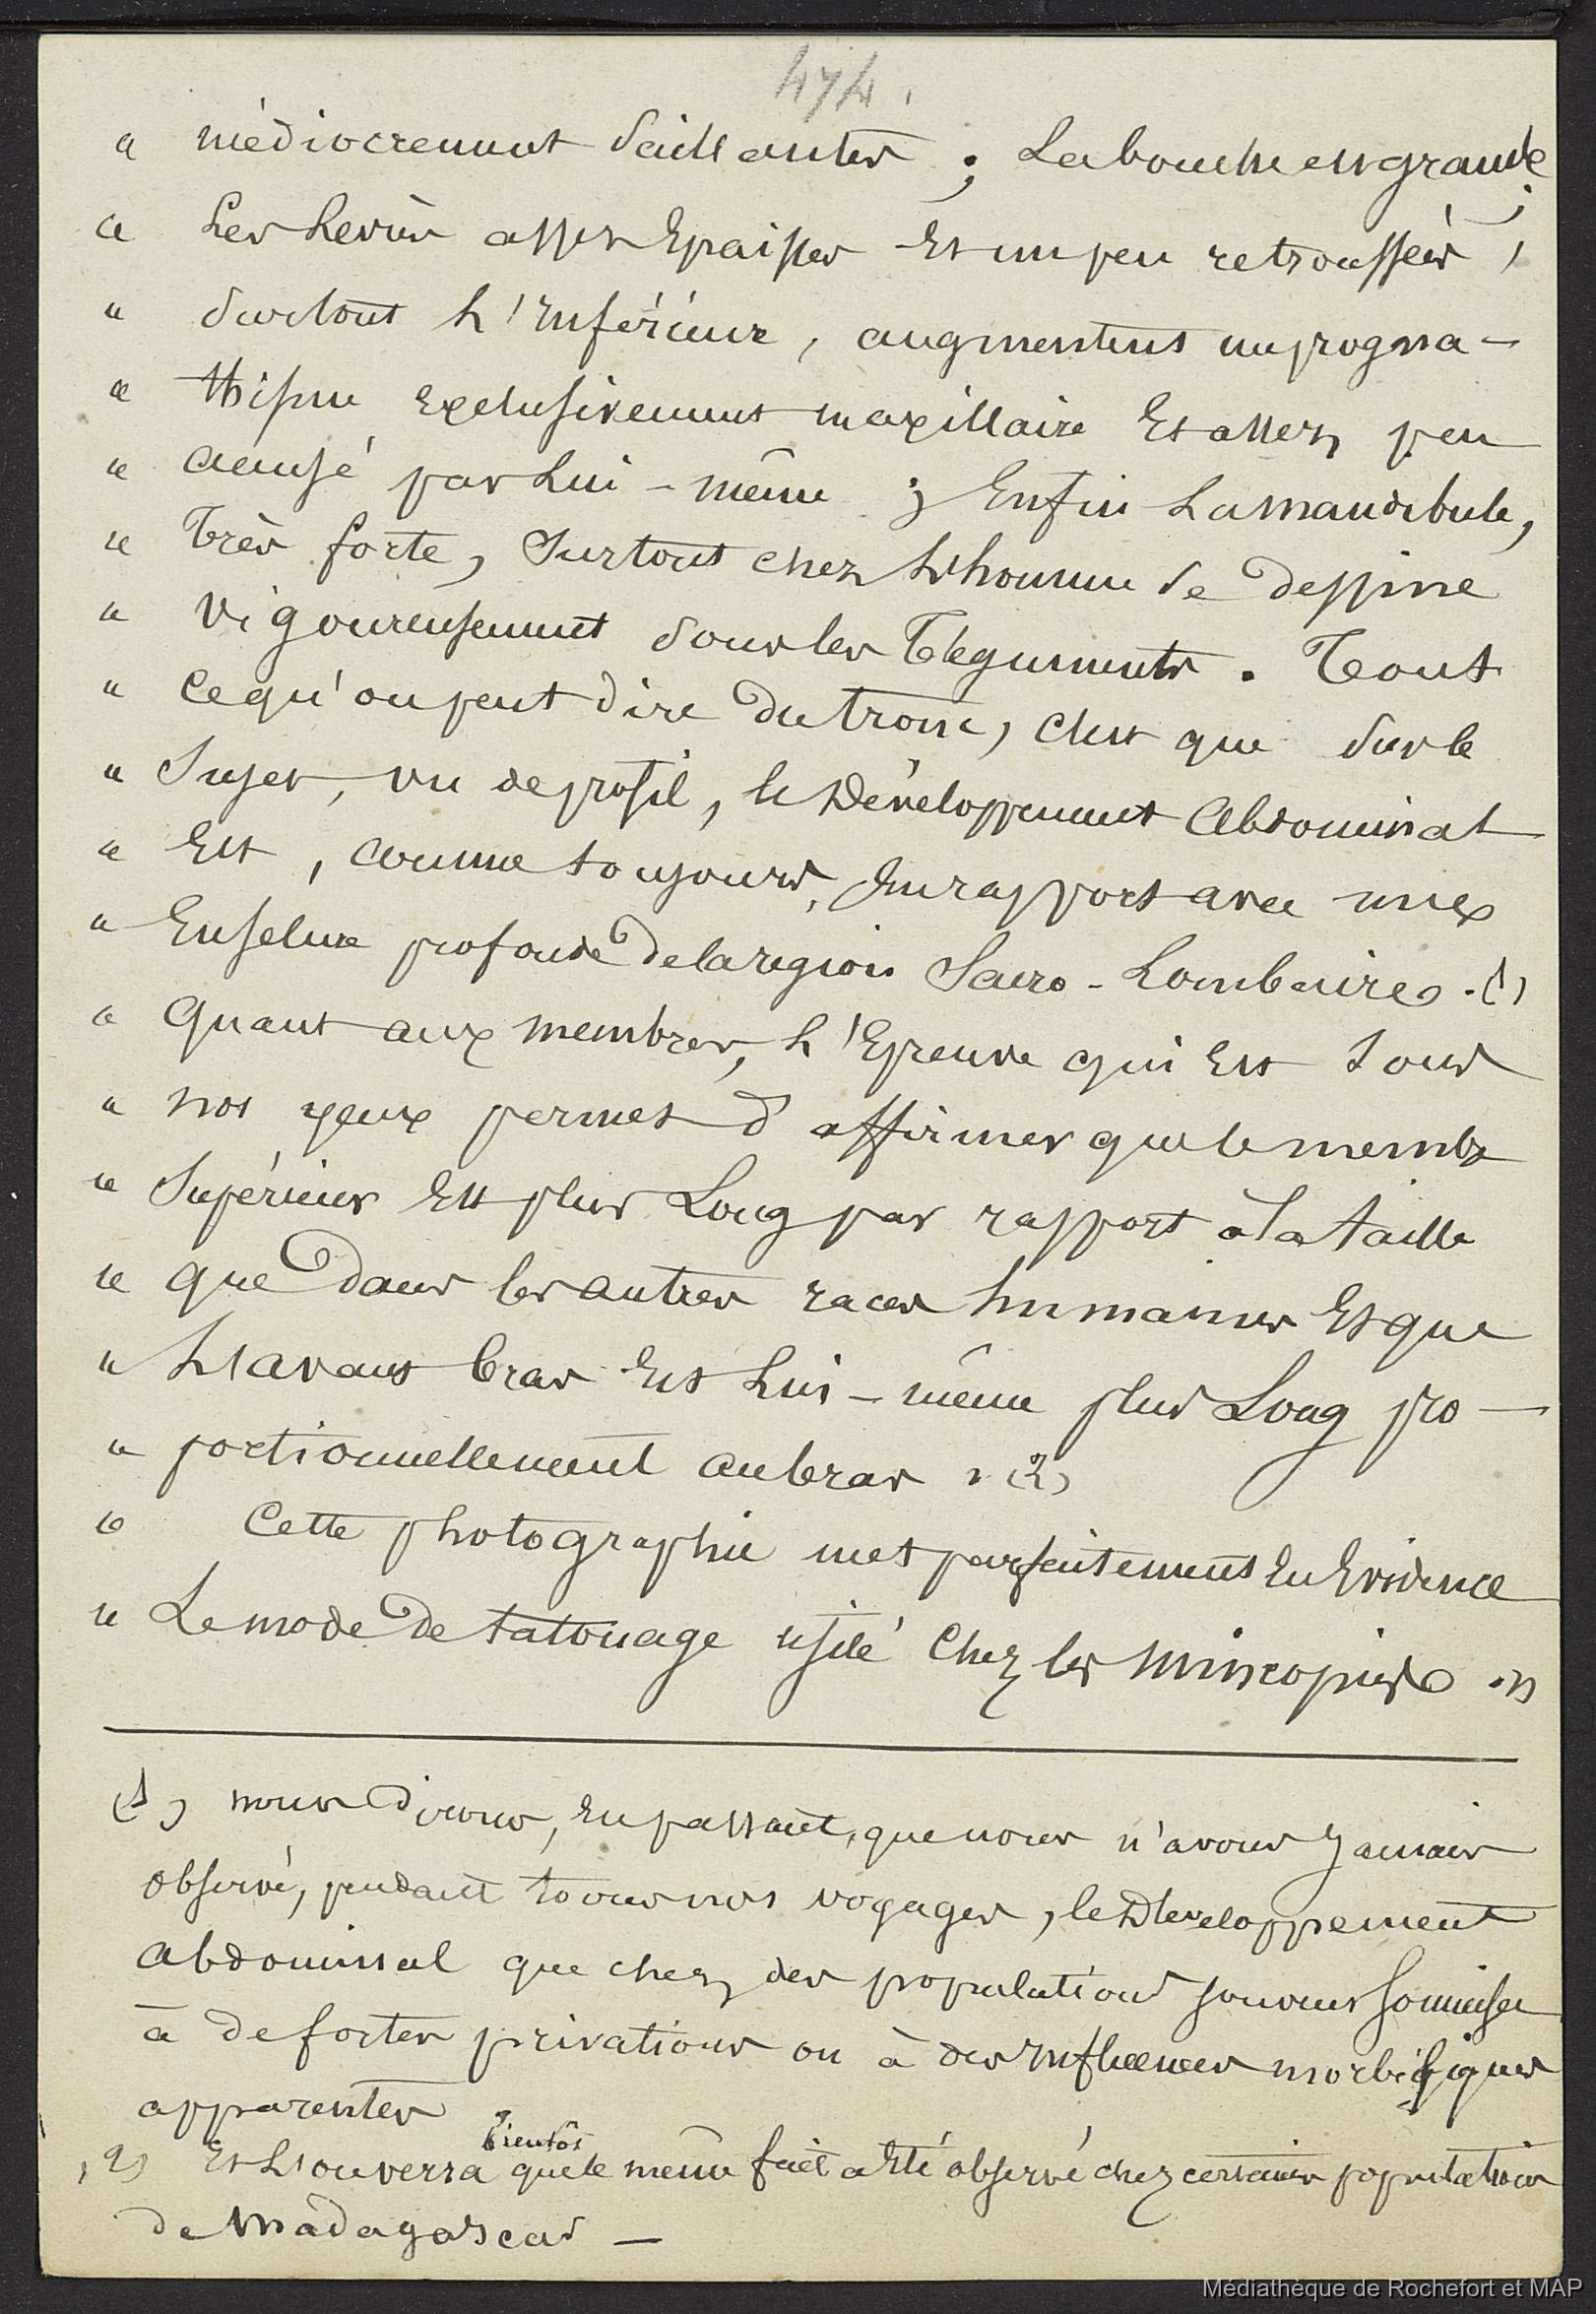 474.
" médiocrement saillantes ; La bouche est grande ;
" Les Levres assez Epaisses Et un peu retroussées ,
" surtout L'Inférieure , augmentent un progna-
" thisme Exclusivement maxillaire Et assez peu
" accusé par Lui-même ; Enfin La mandibule,
" très forte, surtout chez L'homme se dessine
" vigoureusement sous les Téguments . Tout
" ce qu'on peut dire du tronc, c'est que sur le
" sujet, vu de profil, le Développement Abdominal
" Est, comme toujours, En rapport avec une
" Enselure profonde de la région Sacro-Lombaire . (1)
" Quant aux membres, L'Epreuve qui Est sous
" nos yeux permet d'affirmer que le membre
" Supérieur Est plus Long par rapport à la taille
" que dans les autres races humaines Et que
" L'avant bras Est Lui-même plus Long pro-
" portionnellement au bras . (2)
" Cette photographie met parfaitement En Evidence
" Le mode de tatouage usité chez les Mincopies . "
(1) nous dirons, En passant, que nous n'avons jamais
observé, pendant tous nos voyages, le Développement
abdominal que chez des populations souvent soumises
à de fortes privations ou à des Influences morbifiques
apparentes
(2) Et L'on verra bientôt que le même fait a Eté observé chez certaines populations
de Madagascar —
Médiathèque de Rochefort et MAP